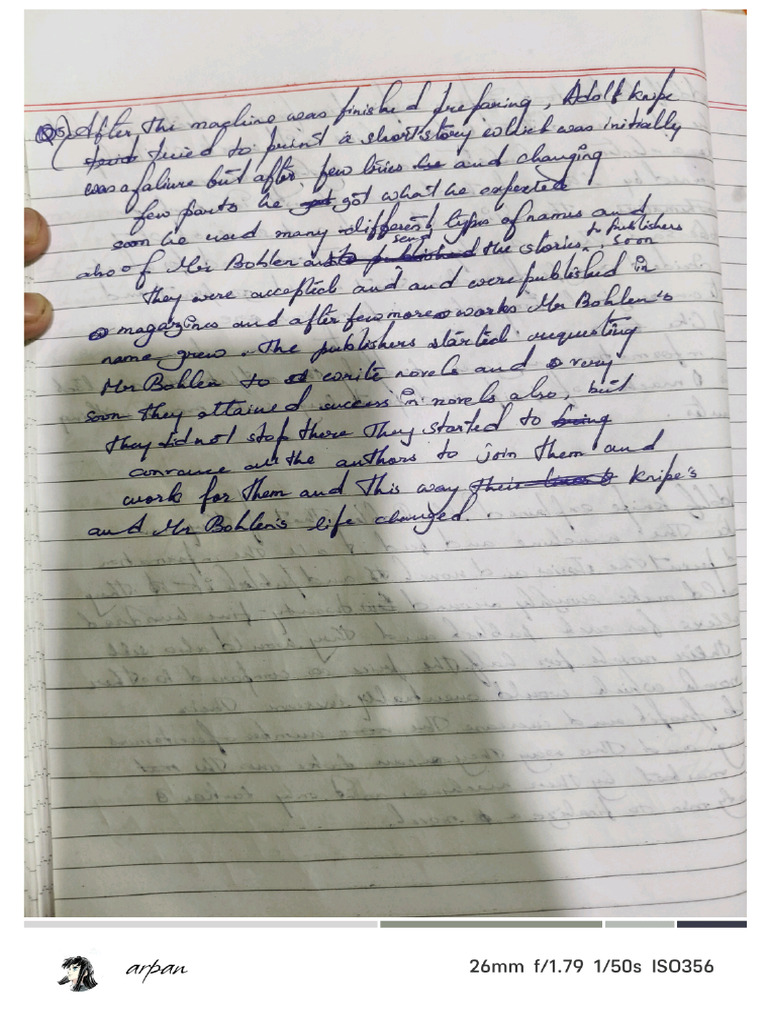 Q5) After the maghine was finished preparing, Adolf Knipe
tried to print a short story which was initially
was a faliure but after few tries and changing
few parts he got what he expected
soon he used many different types of names and
also of Mr Bohlen and send the stories to Publishers, soon
they were accepted and and were published in
magazines and after few more works Mr Bohlen's
name grew. The publishers started requesting
Mr Bohlen to write novels and very
soon they attained success in novels also, but
they did not stop there They started to
convance all the authors to join them and
work for them and this way Knipe's
and Mr Bohlen's life changed.
arpan
26mm f/1.79 1/50s ISO356